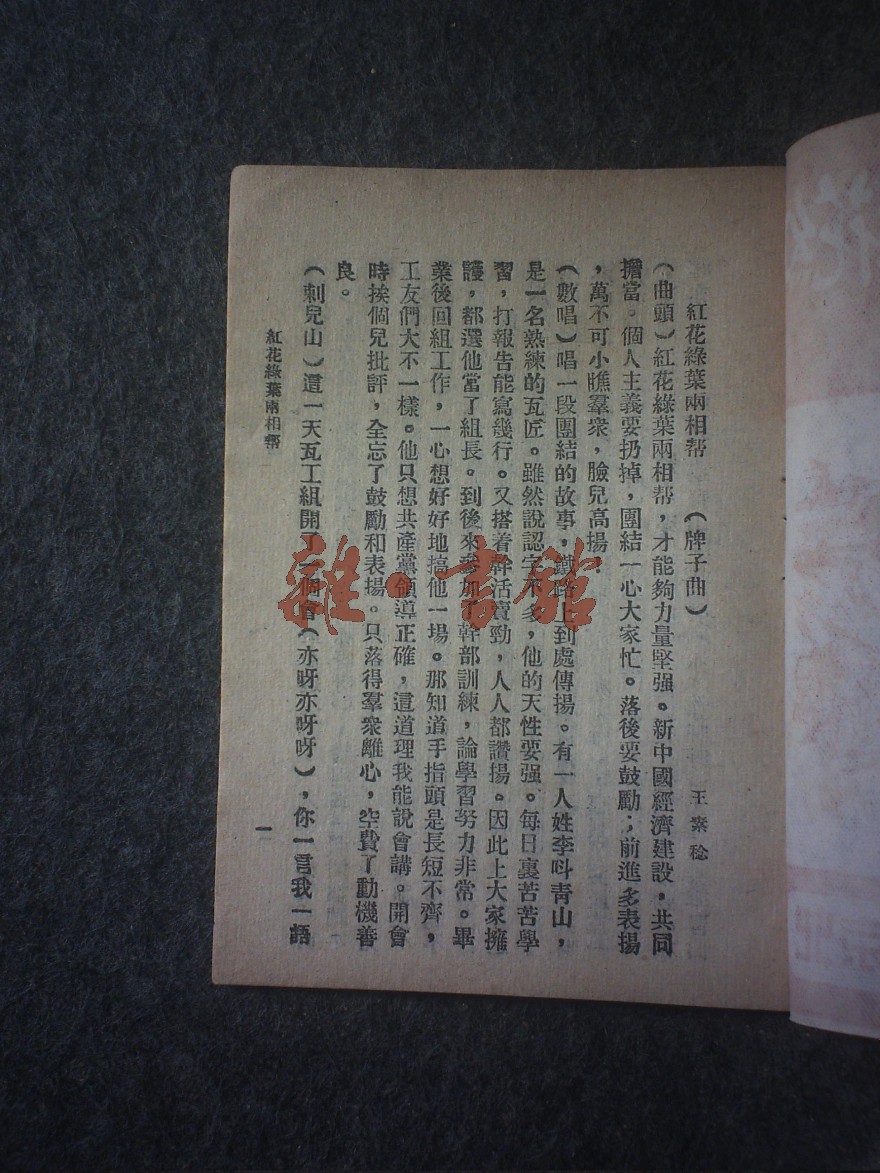 紅花綠葉兩相帮　（牌子曲）　王素稔
（曲頭）紅花綠葉兩相帮，才能夠力量堅强。新中國經濟建設，共同
擔當。個人主義要扔掉，團結一心大家忙。落後要鼓勵；前進多表揚
，萬不可小瞧羣衆，臉兒高揚
（數唱）唱一段團結的故事，鐵路上到處傳揚。有一人姓李叫青山，
是一名熟練的瓦匠。雖然說認字不多，他的天性要强。每日裏苦苦學
習，打報告能寫幾行。又搭着幹活賣勁，人人都讚揚。因此上大家擁
護，都選他當了組長。到後來參加了幹部訓練，論學習努力非常。畢
業後回組工作，一心想好好地搞他一場。那知道手指頭是長短不齊，
工友們大不一樣。他只想共產黨領導正確，這道理我能說會講。開會
時挨個兒批評，全忘了鼓勵和表揚。只落得羣衆離心，空費了動機善
良。
（刺兒山）這一天瓦工組開了一個會（亦呀亦呀呀），你一言我一語
紅花綠葉兩相帮
一
雜·書館